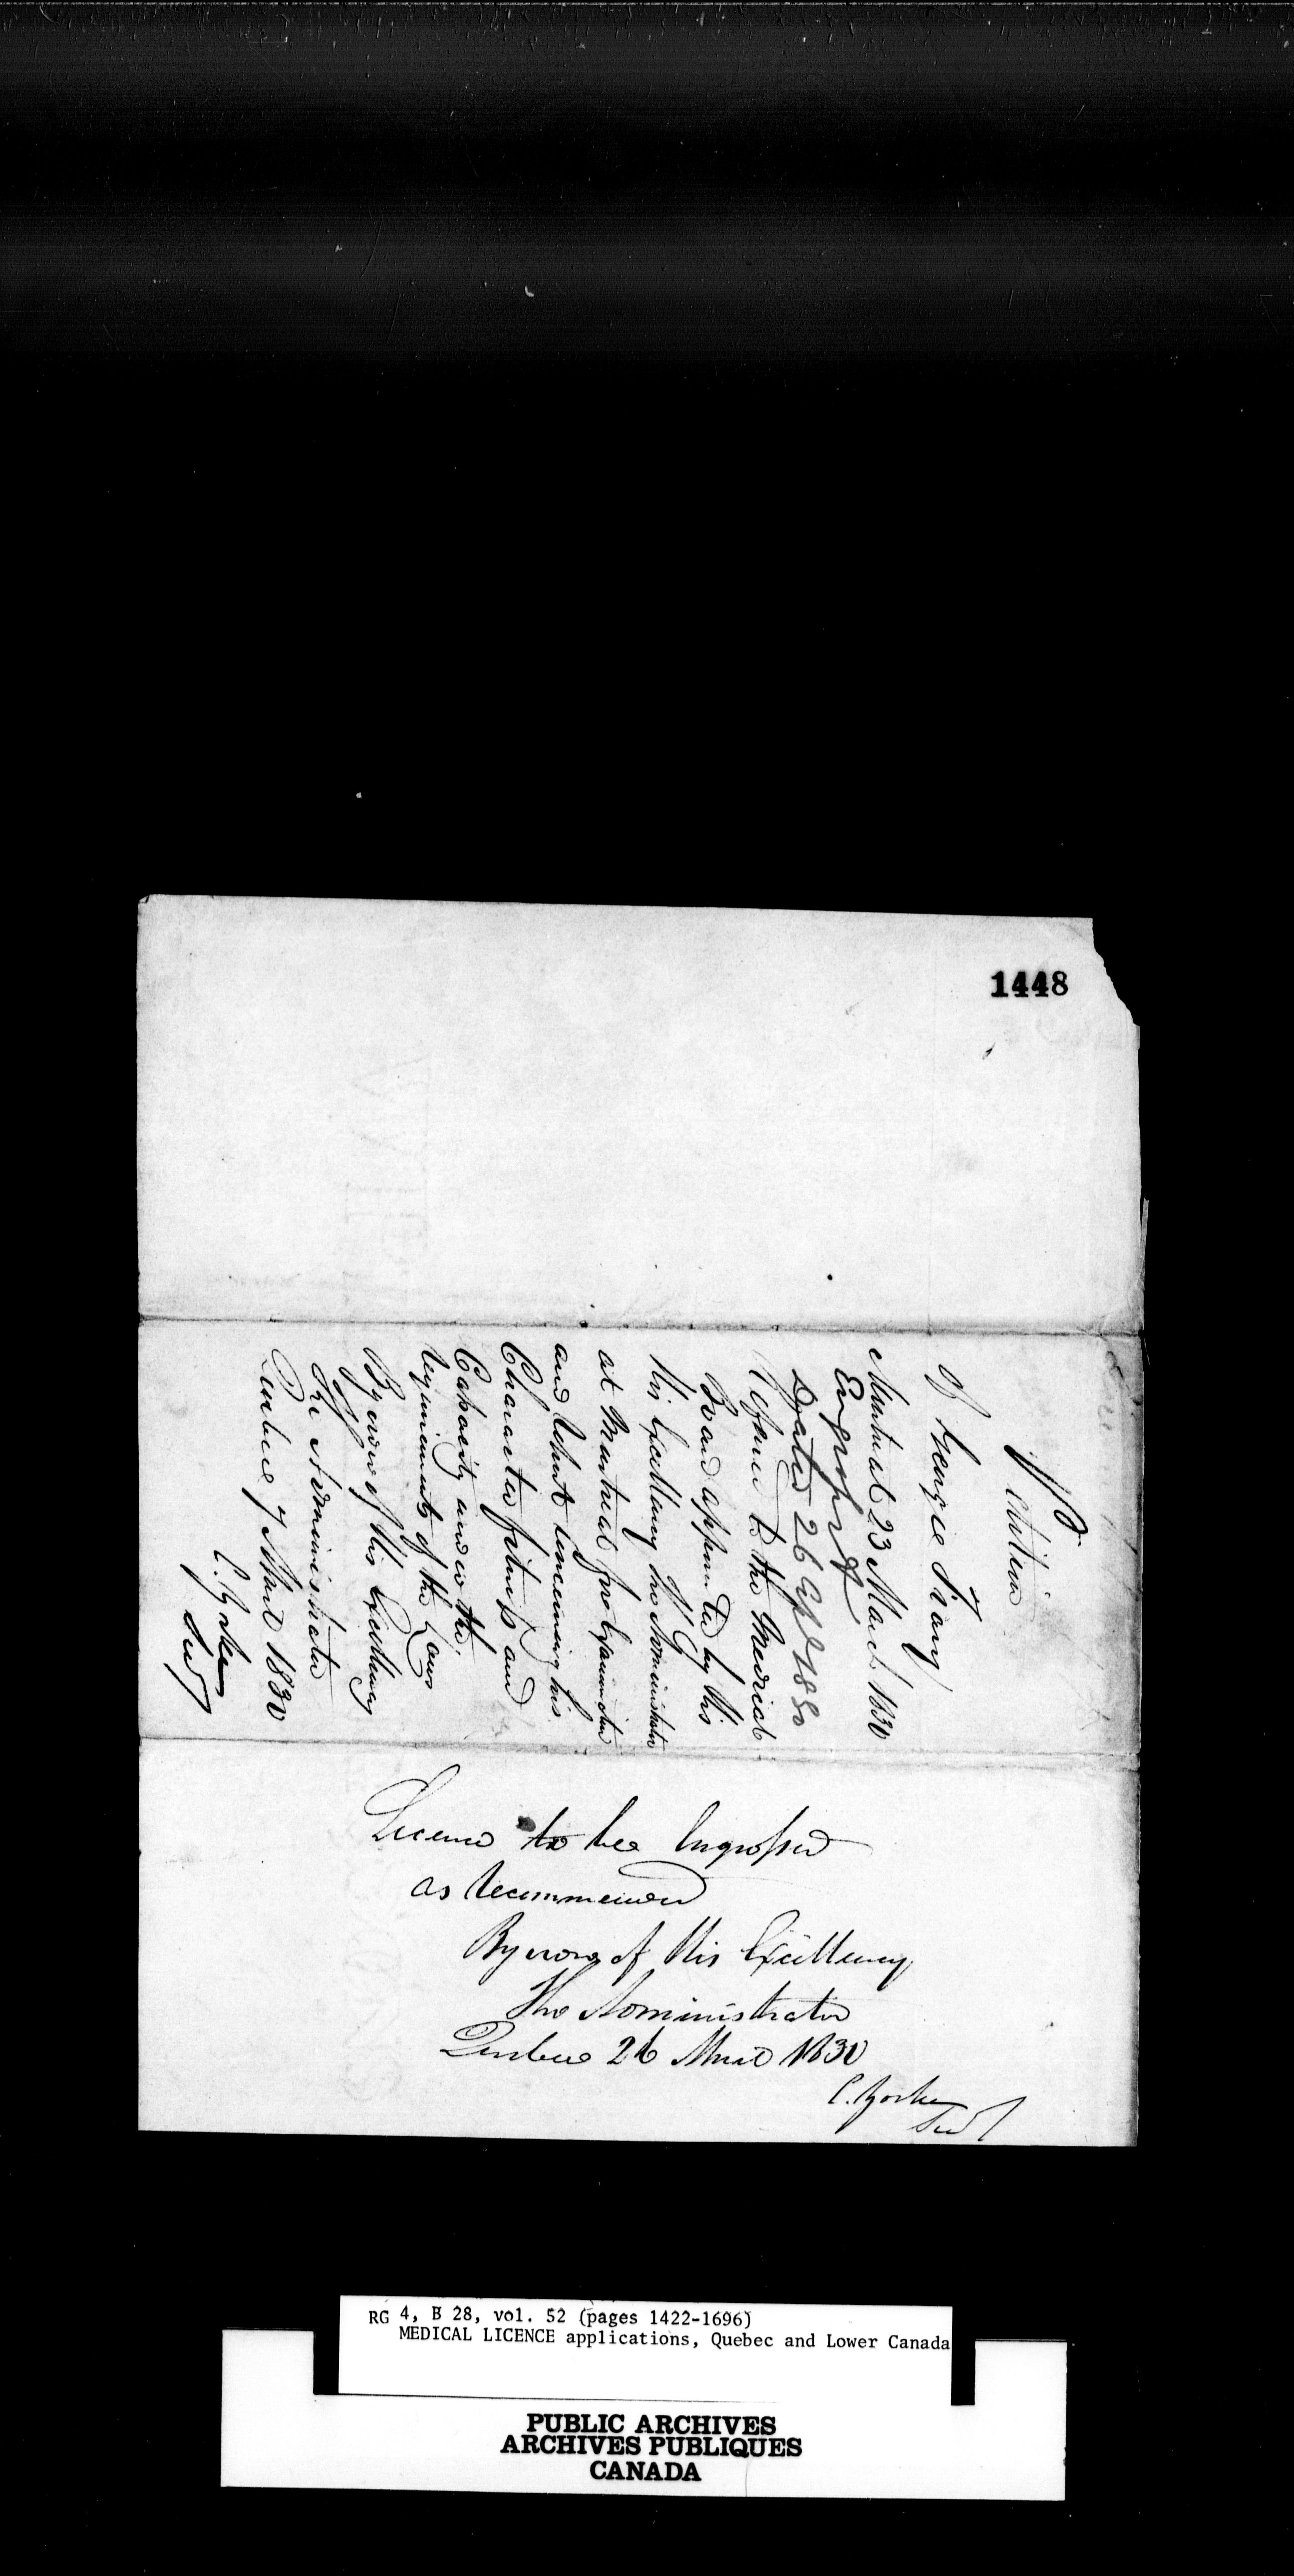 1448
Petition
of George
Montreal 23 March 1830
Engrossed
Dated 26 Apl 1830
Referred to the Medical
Board appointed by His
His Excellency the Administrator
at Montreal for Examination
and Report concerning his
Character fitness and
Capacity under the
requirements of the Law
By order of His Excellency
The Administrator
Quebec 7 April 1830
C. Yorke
Secy
Licence to be Engrossed
as recommended
By order of His Excellency
The Administrator
Quebec 26 April 1830
C. Yorke
Secy
RG 4, B 28, vol. 52 (pages 1422-1696)
MEDICAL LICENCE applications, Quebec and Lower Canada
PUBLIC ARCHIVES
ARCHIVES PUBLIQUES
CANADA